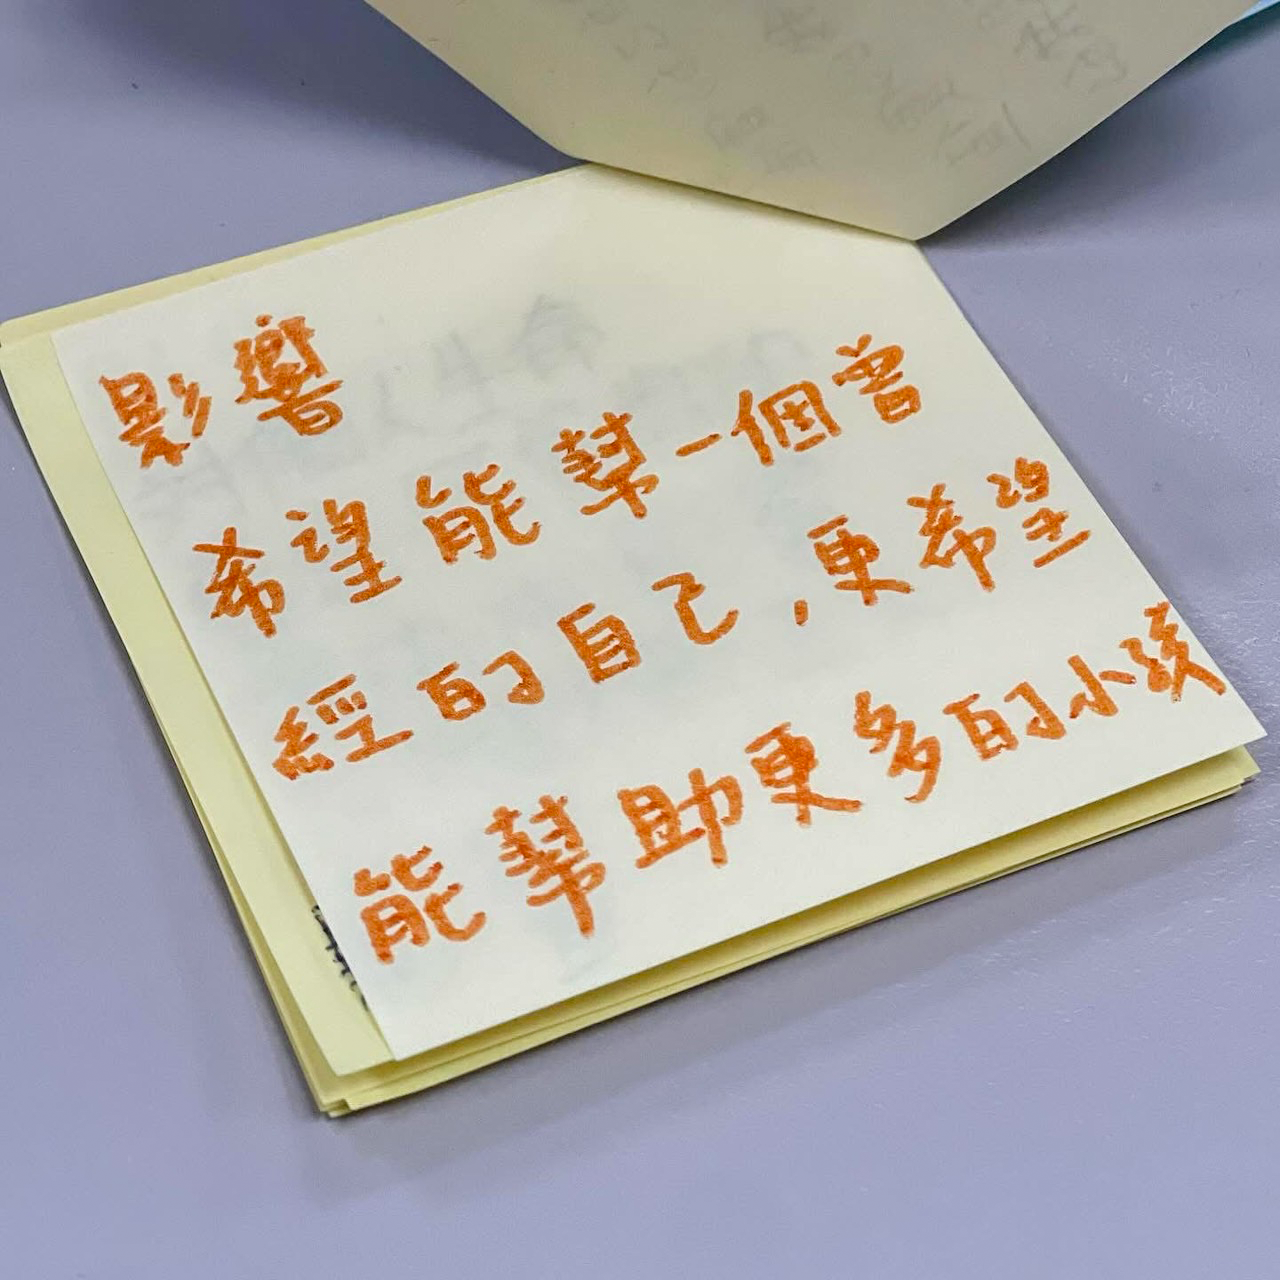 影響
希望能幫一個曾
經的自己，更希望
能幫助更多的小孩